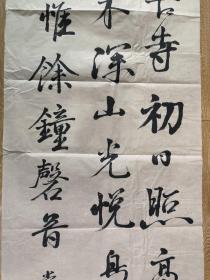 古寺初日照高
木深山光悅鳥
惟餘鐘磬音